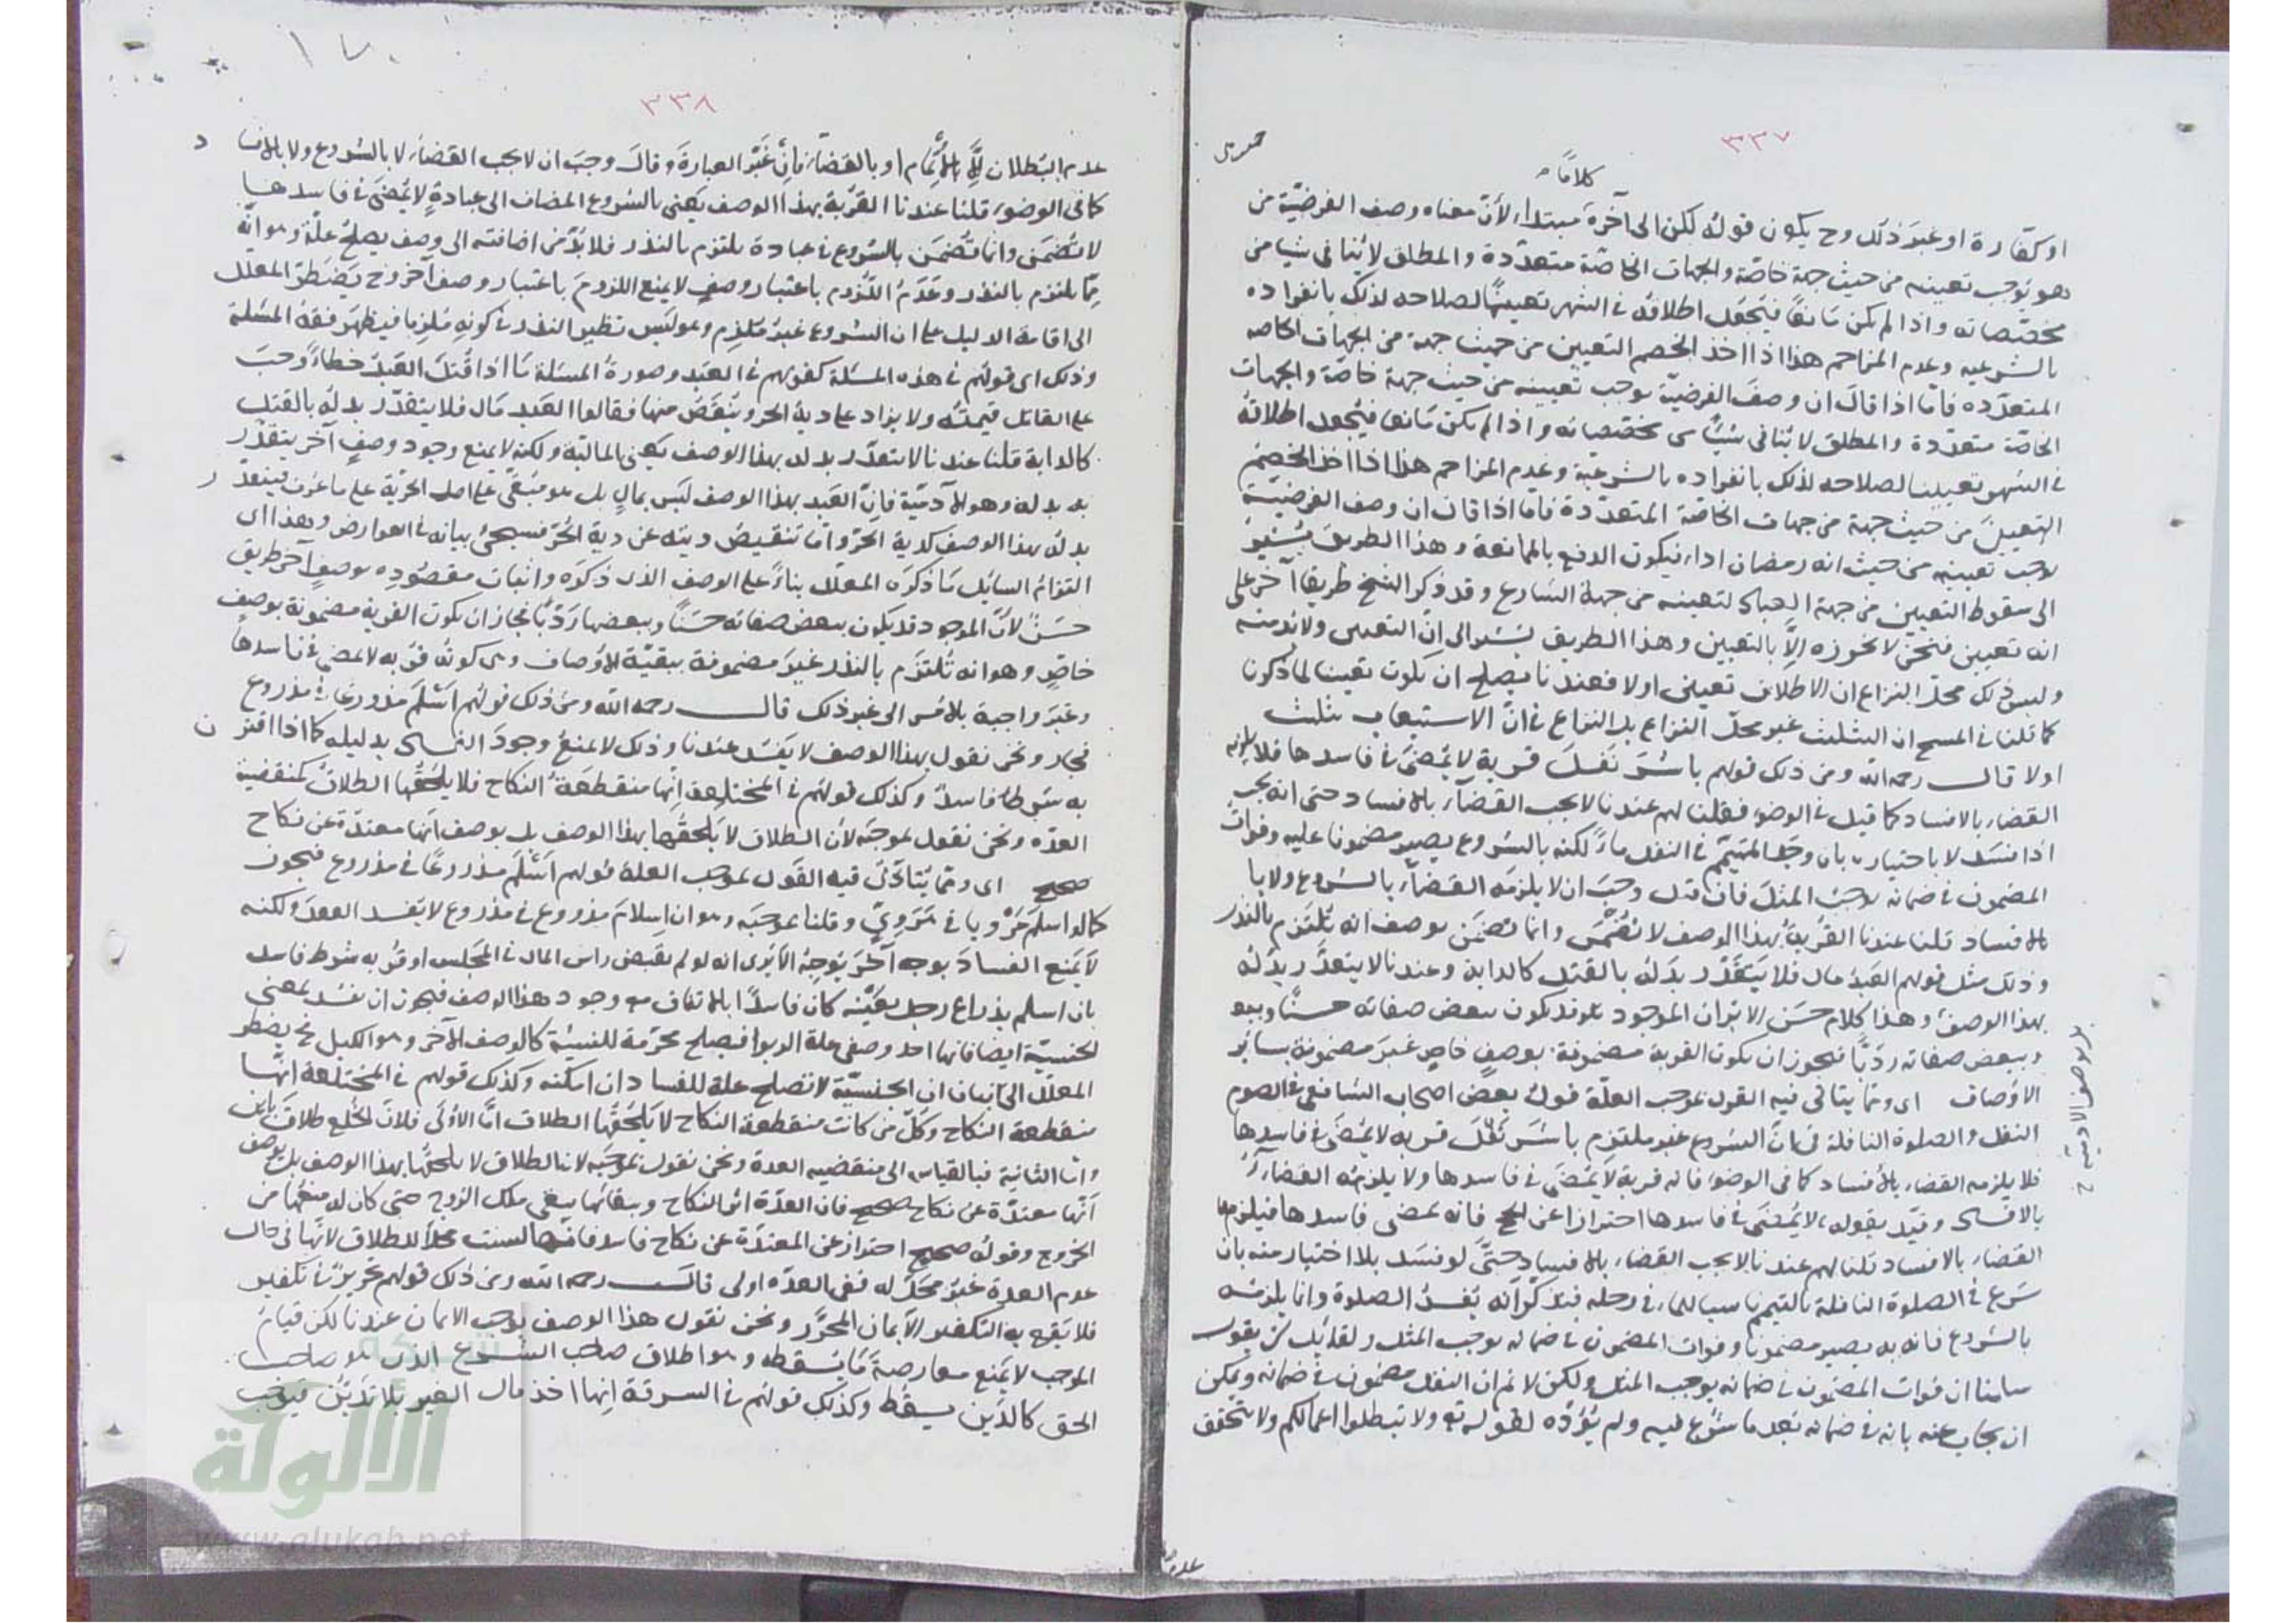 ٣٣٧
كلاما
او كفارة او غير ذلك وح يكون قوله لكن الى آخره مبتدا، لأن معناه وصف الفرضيّة من
وهو يوجب تعيينه من حيث جهة خاصّة والجهات الخاصّة متعدّدة والمطلق لا ينافى شيا من
مخصّصاته واذا لم يكن مانعا فيجعل اطلاقه فى الشهر تعيينا لصلاحه لذلك بانفراده
بالشرعيه وعدم المزاحم هذا اذا اخذ الخصم التعيين من حيث جهة من الجهات الخاصه
المتعدّده فأما اذا قال ان وصف الفرضيّة يوجب تعيينه من حيث جهة خاصّة والجهات
الخاصّة متعدّدة والمطلق لا ينافى شيئا من مخصّصاته واذا لم يكن مانعا فيجعل اطلاقه
فى الشهر تعيينا لصلاحه لذلك بانفراده بالشرعية وعدم المزاحم هذا اذا اخذ الخصم
التعيين من حيث جهة من جهات الخاصّة المتعدّدة فأما اذا قال ان وصف الفرضيّة
يوجب تعيينه من حيث انه رمضان اداء فيكون الدفع بالممانعة وهذا الطريق يشير
الى سقوط التعيين من جهة العباد لتعينه من جهة الشارع وقد ذكر الشيخ طريقا آخر على
انه تعيين فنحن لا نجوزه إلّا بالتعيين وهذا الطريق يشير الى انّ التعيين ولا بد منه
وليس ذلك محل النزاع ان الاطلاق تعيين اولا فعندنا يصلح ان يكون تعيينا لما ذكرنا
كما قلنا فى المسح ان التثليث غير محلّ النزاع بل النزاع فى انّ الاستيعاب تثليث
اولا قال رحمه الله ومن ذلك قولهم باشر نفل قربة لا يمضى فى فاسدها فلا يلزمه
القضاء بالافساد كما قيل فى الوضوء فقلنا لهم عندنا لا يجب القضاء بالافساد حتى انه يجب
اذا فسد لا باختياره بان وجد المتيمّم فى النفل ماء لكنه بالشروع يصير مضمونا عليه وفوات
المضمون فى ضمانه يوجب المثل فان قيل وجب ان لا يلزمه القضاء بالشروع ولا با
بالافساد قلنا عندنا القربة بهذا الوصف لا تضمن وانما تضمن بوصف انه تلتزم بالنذر
وذلك مثل قولهم العبد مال فلا يتقدّر بدله بالقتل كالدابة وعندنا لا يتقدّر بدله
بهذا الوصف وهذا كلام حسن الا ترى ان الموجود قد يكون ببعض صفاته حسنا
وببعض صفاته رديّا فيجوز ان يكون القربة مضمونة بوصف خاص غير مضمونة بسائر
الاوصاف اى ومما يتاتى فيه القول بموجب العلّة قول بعض اصحاب الشافعى فى الصوم
النفل والصلوة النافلة فى انّ الشروع غير ملتزم باشر نفل قربه لا يمضى فى فاسدها
فلا يلزمه القضاء بالافساد كما فى الوضوء فانه قربة لا يمضى فى فاسدها ولا يلزمه القضاء
بالافساد وقيّد بقوله، لا يمضى فى فاسدها احترازا عن الحج فانه يمضى فاسدها فيلزمه
القضاء بالافساد قلنا لهم عندنا لا يجب القضاء بالافساد حتّى لو فسد بلا اختيار منه بان
شرع فى الصلوة النافلة بالتيمم ناسيا للماء فى رحله فتذكّر انه يفسد الصلوة وانما يلزمه
بالشروع فانه به يصير مضمونا وفوات المضمون فى ضمانه يوجب المثل ولقائل ان يقول
سلمنا ان فوات المضمون فى ضمانه يوجب المثل ولكن لا نم ان النفل مضمون فى ضمانه ويمكن
ان يجاب عنه بانه فى ضمانه بعد ما شرع فيه ولم يؤدّه لقوله تع ولا تبطلوا اعمالكم ولا يتحقق
بل بوصف الادمية
عدم
١٧٠
٣٣٨
عدم البطلان إلّا بالاتمام او بالقضاء فإن غيّر العبارة وقال وجب ان لا يجب القضاء لا بالشروع ولا بالافسا د
كما فى الوضوء قلنا عندنا القربة بهذا الوصف يعنى بالشروع المضاف الى عبادة لا يمضى فى فاسدها
لا تضمن وانما تضمن بالشروع فى عبادة يلتزم بالنذر فلا بدّ من اضافته الى وصف يصلح علّة وهو انه
مما يلتزم بالنذر وعدم اللزوم باعتبار وصف لا يمنع اللزوم باعتبار وصف آخر وح يضطر المعلّل
الى اقامة الدليل على ان الشروع غير ملزم وهو ليس نظير النذر فى كونه ملزما فيظهر فقه المسئلة
وذلك اى قولهم فى هذه المسئلة كقولهم فى العبد وصورة المسئلة ما اذا قتل العبد خطاء وجب
على القاتل قيمته ولا يزاد على دية الحر وينقص منها فقالوا العبد مال فلا يتقدّر بدله بالقتل
كالدابة قلنا عندنا لا يتقدّر بدله بهذا الوصف يعنى المالية ولكنه لا يمنع وجود وصف آخر يتقدّر
به بدله وهو الآدميّة فان العبد بهذا الوصف ليس بمال بل هو مبقى على اصل الحرّية على ما عرف فيتقدّ ر
بدله بهذا الوصف كدية الحرّ واما تنقيص ديته عن دية الحرّ فسيجئ بيانه فى العوارض وهذا اى
التزام السايل ما ذكره المعلّل بناء على الوصف الذى ذكره واثبات مقصوده بوصف آخر طريق
حسن لانّ الموجود قد يكون ببعض صفاته حسنا وببعضها رديّا فجاز ان يكون القربة مضمونة بوصف
خاص وهو انه تلتزم بالنذر غير مضمونة ببقيّة الاوصاف وهى كونه قربه لا يمضى فى فاسدها
وغير واجبة بالامس الى غير ذلك قال رحمه الله ومن ذلك قولهم اسلم مذروعا فى مذروع
فجاز ونحن نقول بهذا الوصف لا يفسد عندنا وذلك لا يمنع وجود الفساد بدليله كما اذا اقتر ن
به شرط فاسد وكذلك قولهم فى المختلعة انّها منقطعة النكاح فلا يلحقها الطلاق كمنقضية
العدّه ونحن نقول بموجبه لان الطلاق لا يلحقها بهذا الوصف بل بوصف انها معتدّة عن نكاح
صحيح اى ومما يتاتى فيه القول بموجب العلة قولهم اسلم مذروعا فى مذروع فيجوز
كما لو اسلم هرويا فى مروى وقلنا بموجبه وهو ان اسلام مذروع فى مذروع لا يفسد العقد ولكنه
لا يمنع الفساد بوجه آخر يوجبه الا يرى انه لو لم يقبض راس المال فى المجلس او قرن به شرط فاسد
بان اسلم بذراع رجل بعينه كان فاسدا بالاتفاق مع وجود هذا الوصف فيجوز ان يفسد بمعنى
الجنسيّة ايضا فانها احد وصفى علة الربوا فيصلح محرّمة للنسيئة كالوصف الآخر وهو الكيل فح يضطر
المعلّل الى اثبات ان الجنسيّة لا تصلح علة للفساد ان امكنه وكذلك قولهم فى المختلعة انّها
منقطعة النكاح وكلّ من كانت منقطعة النكاح لا يلحقها الطلاق امّا الاولى فلان الخلع طلاق باين
واما الثانية فبالقياس الى منقضيه العدة ونحن نقول بموجبه لانّ الطلاق لا يلحقها بهذا الوصف بل بوصف
انها معتدّة عن نكاح صحيح فان العدّة اثر النكاح وببقائها يبقى ملك الزوج حتى كان له منعها من
الخروج وقوله صحيح احتراز عن المعتدّة عن نكاح فاسد فانّها ليست محلا للطلاق لانّها فى حال
عدم العدة غير محلّ له ففى العدّه اولى قال رحمه الله ومن ذلك قولهم تحرير فى تكفير
فلا يقع به التكفير الا بايمان المحرّر ونحن نقول هذا الوصف يوجب الايمان عندنا لكن قيام
الموجب لا يمنع معارضة ما يسقطه وهو اطلاق صاحب الشرع الذى هو صاحب
الحق كالدّين يسقط وكذلك قولهم فى السرقة انها اخذ مال الغير بلا تديّن فيوجب
شبكة
الألوكة
www.alukah.net